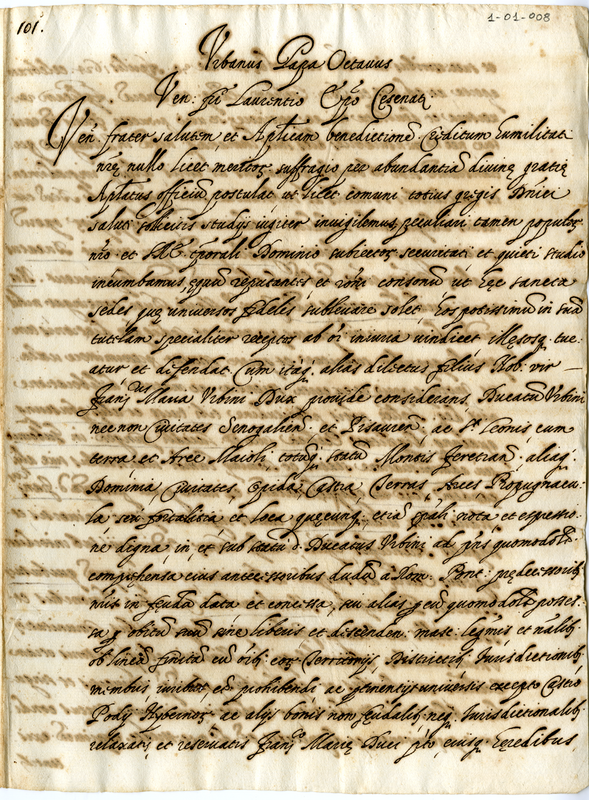 101.
1-01-008
Urbanus Papa Octavus
Ven: fri Laurentio Epo Cesenati
Ven. frater salutem et Aplicam benedictione. Creditum humilitati
nrę nullo licet meritor suffragio per abundantia divinę gratię
Aplatus officiu postulat ut licet comuni totius gregis Dnici
saluti solicitis studys iugiter invigilemus peculiari tamen populor
nro et temporali Dominio subiector securitati et quieti studio
incumbamus, equu reputantes et roni consonum ut hęc sancta
sedes quę universos fideles sublevare solet, eos potissimum in sua
tutelam specialiter receptos ab oi iniuria vindicet illęsosq. tue-
atur et defendat. Cum itaq. alias dilectus filius Nob: vir
Franus Maria Urbini Dux provide considerans, Ducatu Urbini
nec non Civitates Senogalien. et Pisauren. ac Sti Leonis cum
terra et Arce Maioli, totuq. statu Montis feretrani, aliaq.
Dominia Civitates, Opida, Castra, Terras, Arces, Propugnacu-
la seu fortalitia et loca quęcunq. etia spali nota et expressio-
ne digna, in, et sub statu d. Ducatus Urbini ad pns quomodolt.
comphensa eius antecessoribus dudu a Rom. Pont: prędecessorib.
nris in feudu data et concessa, seu alias p eu quomodolt posses-
sa p obitu suu sine liberis et descenden. masc: legmis et nalib.
ob linea finita cu oib. eor Territorys, Districtib. Iurisdictionib.
membris iuribus, et prohibendi ac pertinentys universis excepto Castro
Podÿ Hybernor ac alys bonis non feudalib. neq. Iurisdictionalib.
relaxatis et reservatis Franco Marię Duci pto eiusq. Heredibus,